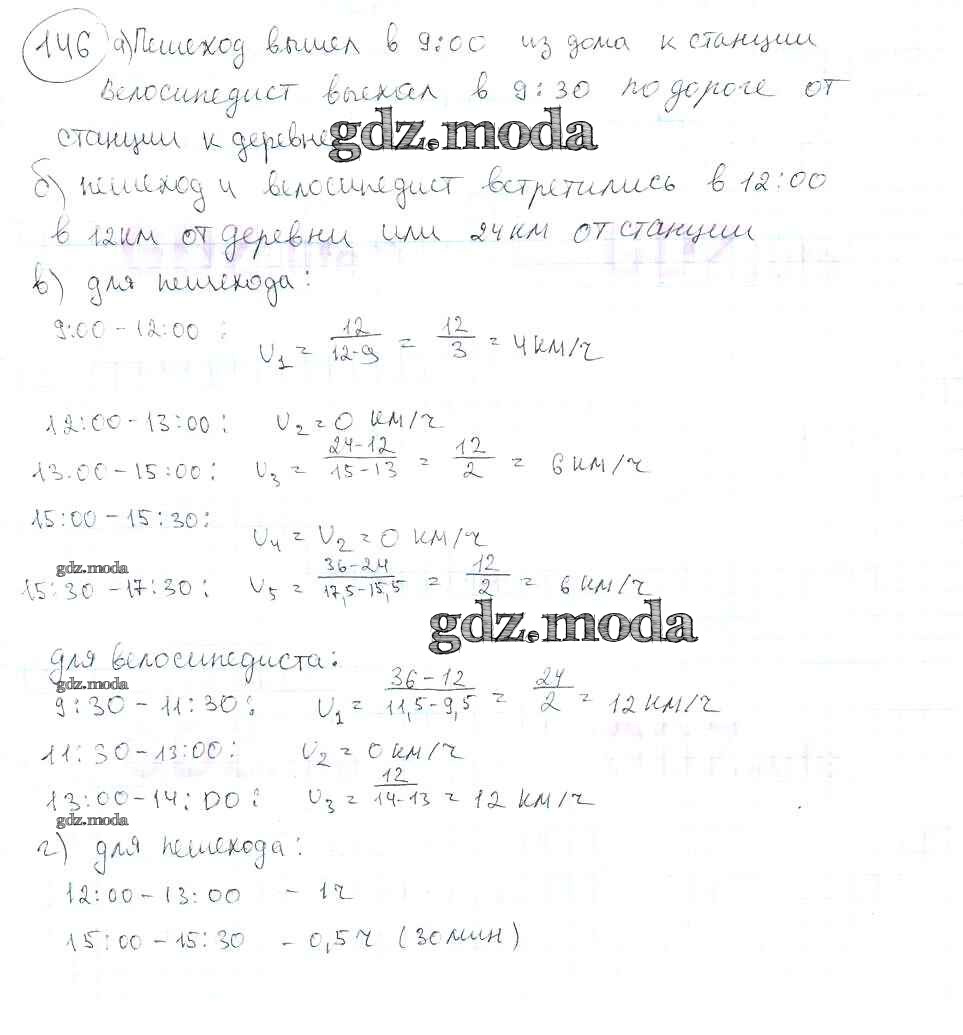 146 а) Пешеход вышел в 9:00 из дома к станции
Велосипедист выехал в 9:30 по дороге от
станции к деревне
gdz.moda
б) пешеход и велосипедист встретились в 12:00
в 12км от деревни или 24км от станции
в) для пешехода:
9:00-12:00: U₁ = 12/12-9 = 12/3 = 4км/ч
12:00-13:00: U₂=0 км/ч
13.00-15:00: U₃ = 24-12/15-13 = 12/2 = 6км/ч
15:00-15:30: U₄ = U₂ = 0 км/ч
gdz.moda
15:30-17:30: U₅ = 36-24/17,5-15,5 = 12/2 = 6км/ч
gdz.moda
для велосипедиста:
gdz.moda
9:30-11:30: U₁ = 36-12/11,5-9,5 = 24/2 = 12км/ч
11:30-13:00: U₂ = 0км/ч
13:00-14:00: U₃ = 12/14-13 = 12 км/ч
gdz.moda
г) для пешехода:
12:00-13:00 - 1ч
15:00-15:30 - 0,5ч (30мин)